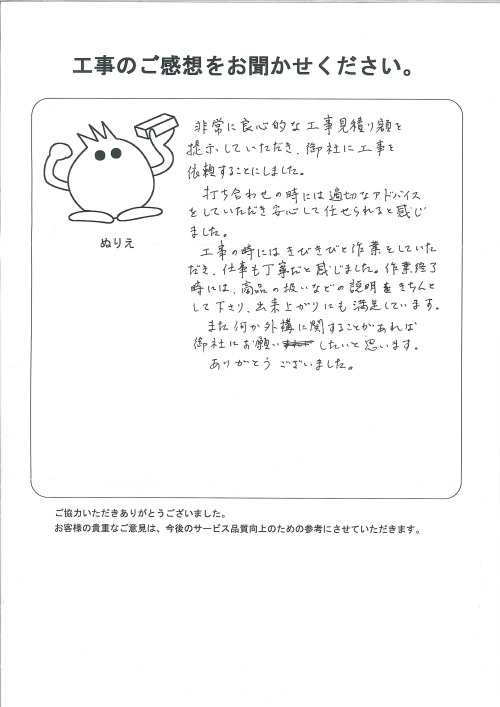 工事のご感想をお聞かせください。
非常に良心的な工事見積り額を
提示していただき、御社に工事を
依頼することにしました。
打ち合わせの時には適切なアドバイス
をしていただき安心して任せられると感じ
ました。
工事の時にはきびきびと作業をしていた
だき、仕事も丁寧だと感じました。作業終了
時には、商品の扱いなどの説明をきちんと
して下さり、出来上がりにも満足しています。
また何か外構に関することがあれば
御社にお願いしたいと思います。
ありがとうございました。
ぬりえ
ご協力いただきありがとうございました。
お客様の貴重なご意見は、今後のサービス品質向上のための参考にさせていただきます。